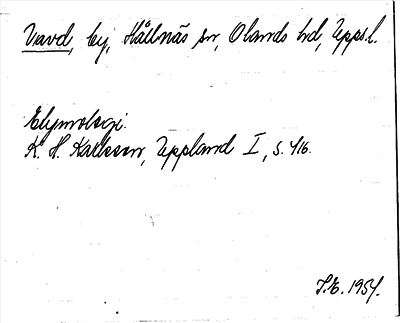 Vavd, by, Hållnäs sn, Olands hd, Upps.l.
Etymologi.
K. H. Karlsson, Uppland I, s. 416.
J.E. 1954.